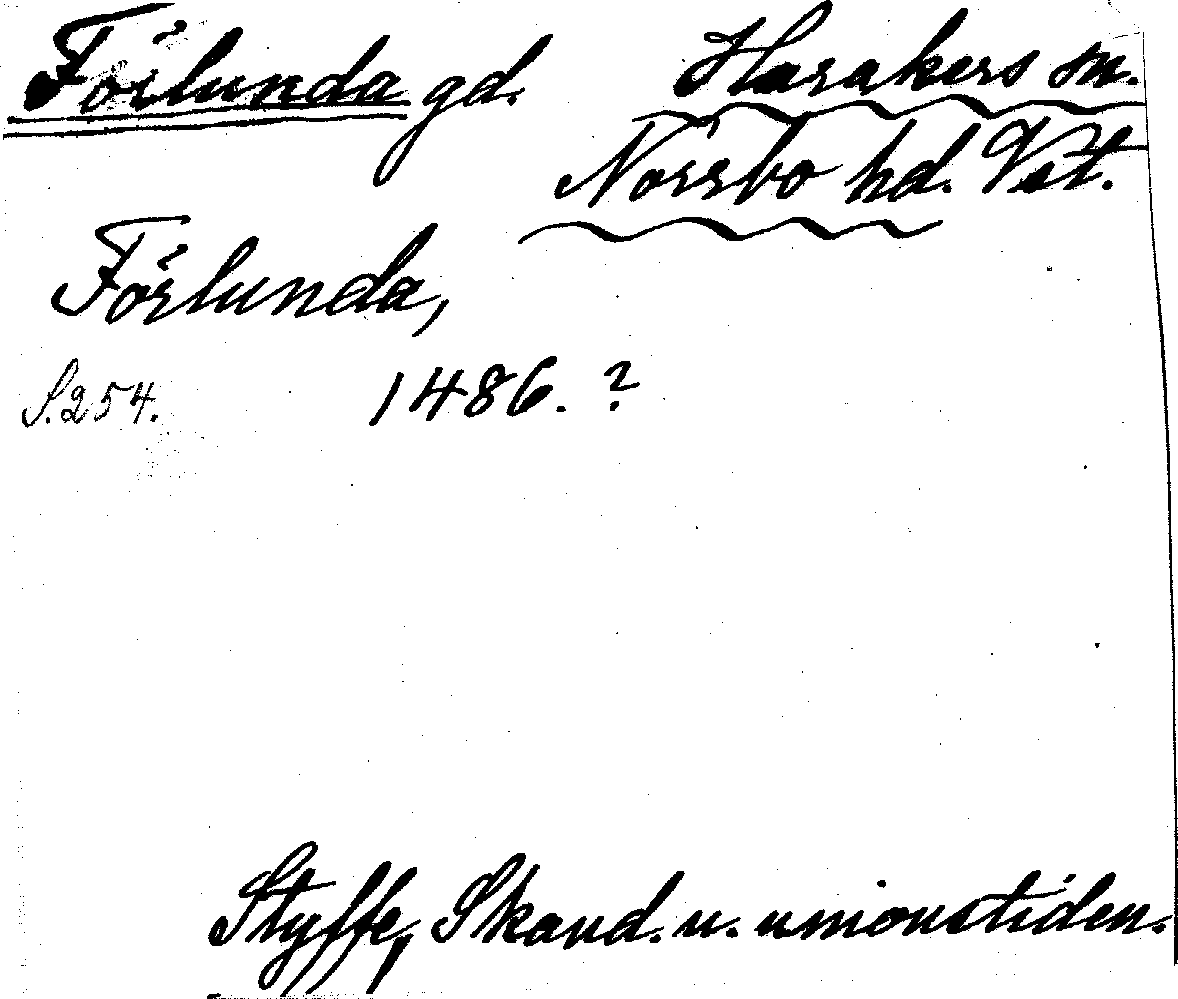 Förlunda gd. Harakers sn.
Norrbo hd. Vstm.
Förlunda,
S. 254. 1486. ?
Styffe, Skand. u. unionstiden.